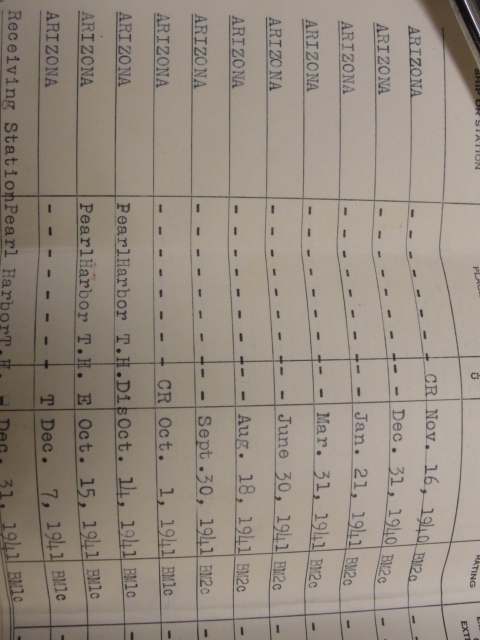 SHIP OR STATION PLACE RATING
ARIZONA - - - - - - - - CR Nov. 16, 1940 BM2c
ARIZONA - - - - - - - - - - Dec. 31, 1940 BM2c
ARIZONA - - - - - - - - - - Jan. 21, 1941 BM2c
ARIZONA - - - - - - - - - - Mar. 31, 1941 BM2c
ARIZONA - - - - - - - - - - June 30, 1941 BM2c
ARIZONA - - - - - - - - - - Aug. 18, 1941 BM2c
ARIZONA - - - - - - - - - - Sept.30, 1941 BM2c
ARIZONA - - - - - - - - CR Oct. 1, 1941 BM1c
ARIZONA PearlHarbor T.H.DisOct. 14, 1941 BM1c
ARIZONA PearlHarbor T.H. E Oct. 15, 1941 BM1c
ARIZONA - - - - - - - - T Dec. 7, 1941 BM1c
Receiving StationPearl HarborT.H. - Dec. 31, 1941 BM1c